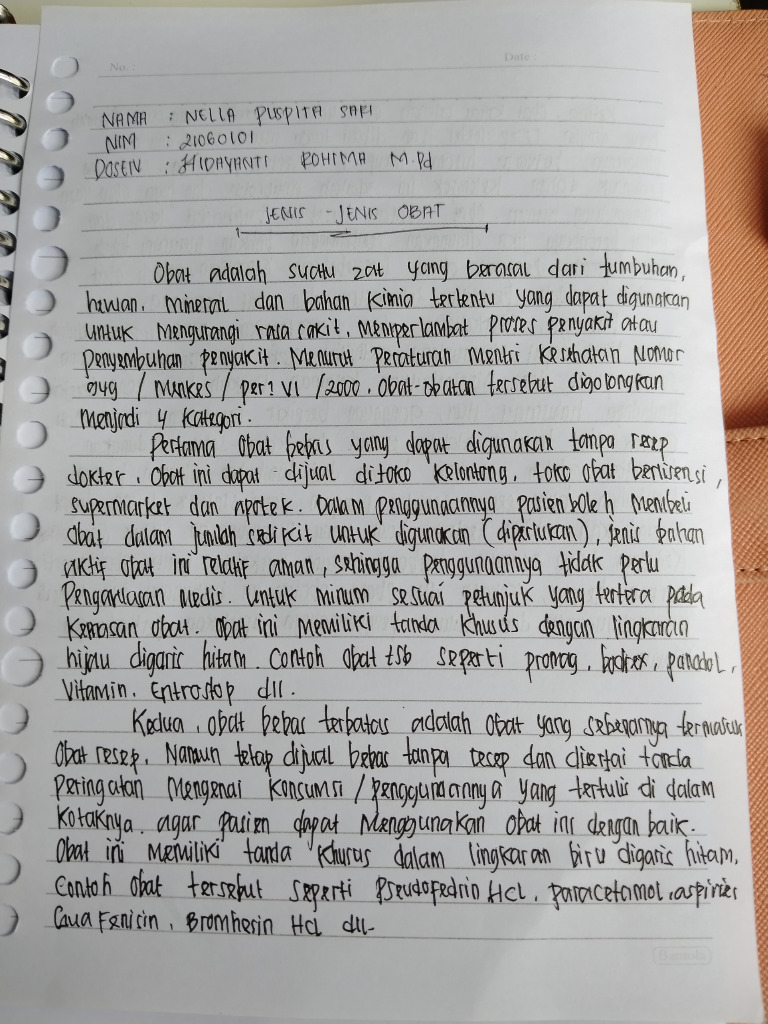 No. :
Date :
NAMA : NELLA PUSPITA SARI
NIM : 21060101
DOSEN : HIDAYANTI ROHIMA M.Pd
JENIS - JENIS OBAT
Obat adalah suatu zat yang berasal dari tumbuhan,
hewan, mineral dan bahan kimia tertentu yang dapat digunakan
untuk mengurangi rasa sakit, memperlambat proses penyakit atau
penyembuhan penyakit. Menurut Peraturan Mentri Kesehatan Nomor
949 / Menkes / per? VI /2000. Obat-obatan tersebut digolongkan
menjadi 4 kategori.
Pertama obat bebas yang dapat digunakan tanpa resep
dokter. Obat ini dapat dijual ditoko kelontong, toko obat berlisensi,
supermarket dan apotek. Dalam penggunaannya pasien boleh membeli
obat dalam jumlah sedikit untuk digunakan (diperlukan), jenis bahan
aktif obat ini relatif aman, sehingga penggunaannya tidak perlu
pengawasan medis. Untuk minum sesuai petunjuk yang tertera pada
kemasan obat. Obat ini memiliki tanda khusus dengan lingkaran
hijau digaris hitam. Contoh obat tsb seperti promag, bodrex, panadol,
Vitamin, Entrostop dll.
Kedua, obat bebas terbatas adalah obat yang sebenarnya termasuk
obat resep. Namun tetap dijual bebas tanpa resep dan disertai tanda
peringatan mengenai konsumsi / penggunaannya yang tertulis di dalam
kotaknya. agar pasien dapat menggunakan obat ini dengan baik.
Obat ini memiliki tanda khusus dalam lingkaran biru digaris hitam.
Contoh obat tersebut seperti pseudofedrin Hcl, paracetamol,
Bromhesin Hcl dll-